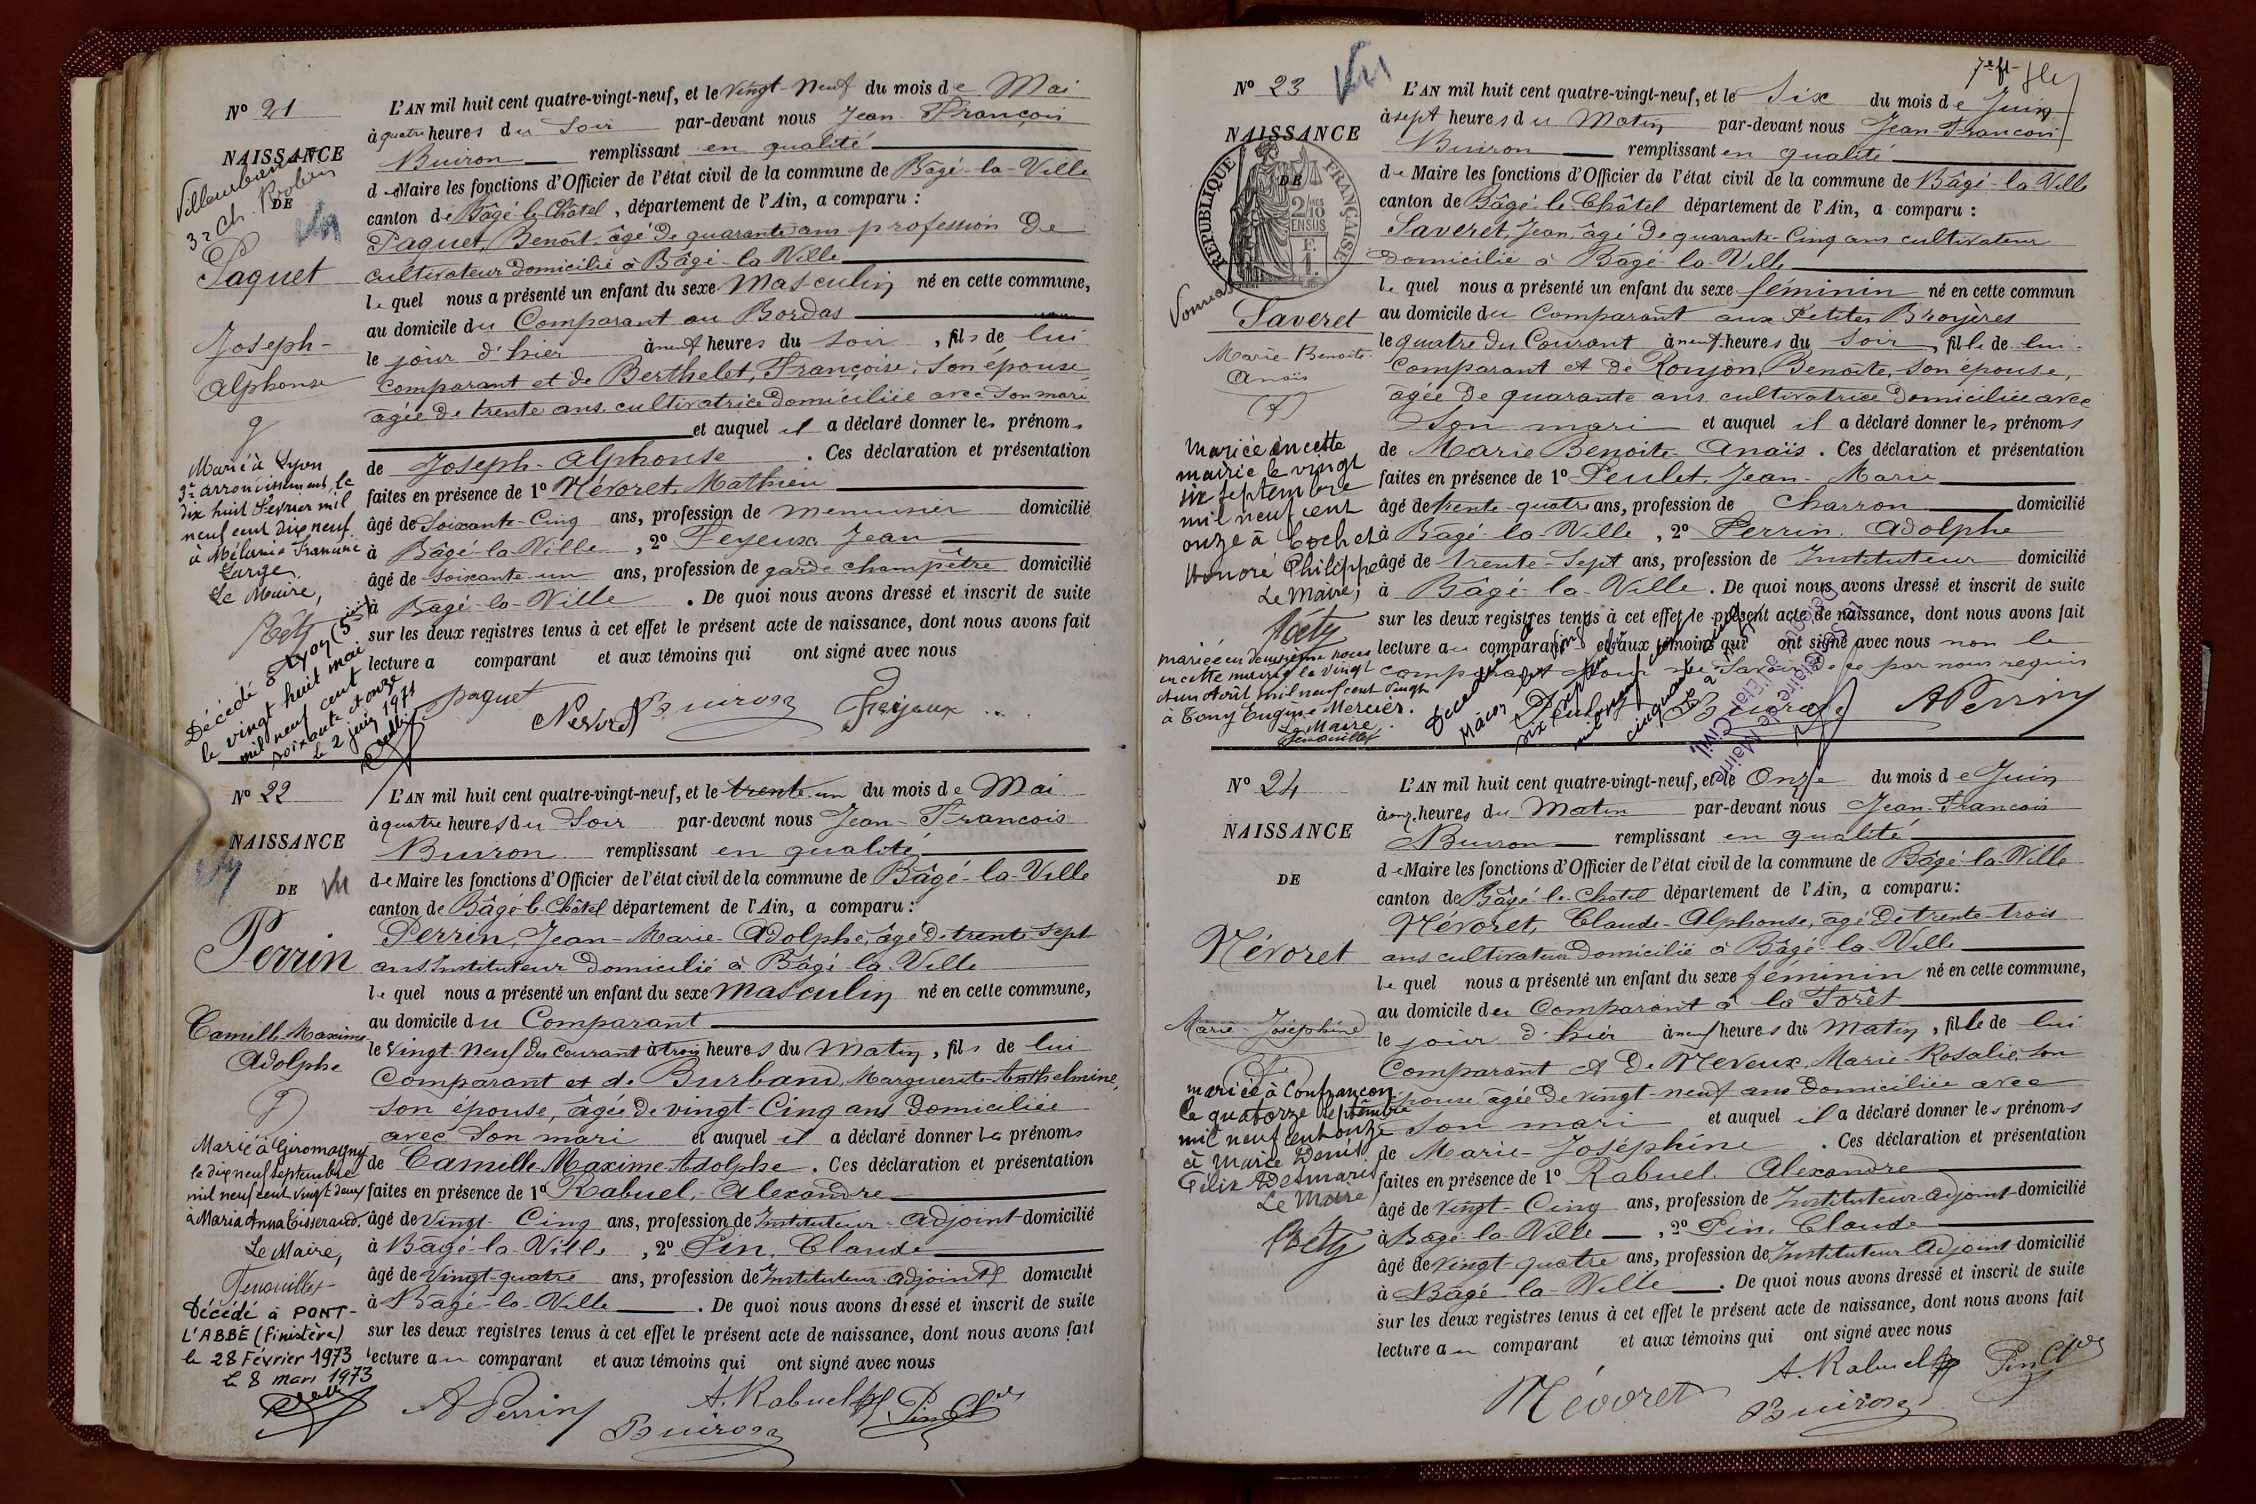 N° 21
NAISSANCE
DE
Paquet
Joseph-
Alphonse
Marié à Lyon
3e arrondissement, le
dix huit Février mil
neuf cent dix neuf
à Mélanie Francine
Large.
Le Maire,
Décédé à Lyon (5e
le vingt huit mai
mil neuf cent
soixante et onze
Le 2 juin 1971
L'AN mil huit cent quatre-vingt-neuf, et le vingt-neuf du mois de Mai
à quatre heures du Soir par-devant nous Jean-François
Buiron remplissant en qualité
de Maire les fonctions d'Officier de l'état civil de la commune de Bâgé-la-Ville
canton de Bâgé-le-Châtel, département de l'Ain, a comparu :
Paquet, Benoît, âgé de quarante ans profession de
cultivateur domicilié à Bâgé-la-Ville
lequel nous a présenté un enfant du sexe Masculin né en cette commune,
au domicile du Comparant au Bordas
le jour d'hier à neuf heures du soir, fils de lui
Comparant et de Berthelet, Françoise, son épouse
âgée de trente ans, cultivatrice domiciliée avec son mari
et auquel il a déclaré donner les prénoms
de Joseph-Alphonse. Ces déclaration et présentation
faites en présence de 1° Névoret, Mathieu
âgé de soixante-cinq ans, profession de menuisier domicilié
à Bâgé-la-Ville, 2° Feyeux Jean
âgé de soixante-un ans, profession de garde champêtre domicilié
à Bâgé-la-Ville. De quoi nous avons dressé et inscrit de suite
sur les deux registres tenus à cet effet le présent acte de naissance, dont nous avons fait
lecture a comparant et aux témoins qui ont signé avec nous
paquet Névoret Buiron
N° 22
NAISSANCE
DE
Perrin
Camille-Maxime
Adolphe
Marié à Giromagny
le dix neuf septembre
mil neuf cent vingt deux
à Maria Anna Tisserand.
Le Maire,
Décédé à PONT-
L'ABBÉ (Finistère)
le 28 Février 1973
le 8 mars 1973
L'AN mil huit cent quatre-vingt-neuf, et le trente-un du mois de Mai
à quatre heures du Soir par-devant nous Jean-François
Buiron remplissant en qualité
de Maire les fonctions d'Officier de l'état civil de la commune de Bâgé-la-Ville
canton de Bâgé-le-Châtel département de l'Ain, a comparu :
Perrin, Jean-Marie-Adolphe, âgé de trente-sept
ans Instituteur domicilié à Bâgé-la-Ville
lequel nous a présenté un enfant du sexe masculin né en cette commune,
au domicile du Comparant
le vingt-neuf du courant à trois heures du matin, fils de lui
Comparant et de Burband, Marguerite-Anthelmine,
son épouse, âgée de vingt-cinq ans domiciliée
avec son mari et auquel il a déclaré donner les prénoms
de Camille-Maxime-Adolphe. Ces déclaration et présentation
faites en présence de 1° Rabuel, Alexandre
âgé de vingt-cinq ans, profession de Instituteur-adjoint domicilié
à Bâgé-la-Ville, 2° Pin, Claude
âgé de vingt-quatre ans, profession de Instituteur adjoint domicilié
à Bâgé-la-Ville. De quoi nous avons dressé et inscrit de suite
sur les deux registres tenus à cet effet le présent acte de naissance, dont nous avons fait
lecture au comparant et aux témoins qui ont signé avec nous
A Perrin Buiron A. Rabuel Pin Cl
N° 23
NAISSANCE
DE
RÉPUBLIQUE FRANÇAISE
Saveret
Marie-Benoite-
Anaïs
Mariée en cette
mairie le vingt
six septembre
mil neuf cent
onze à Cochet
Honoré Philippe
Le Maire,
mariée en deuxième noces
en cette mairie le vingt
à Tony Eugène Mercier.
Le Maire
L'AN mil huit cent quatre-vingt-neuf, et le Six du mois de Juin
à sept heures du Matin par-devant nous Jean-François
Buiron remplissant en qualité
de Maire les fonctions d'Officier de l'état civil de la commune de Bâgé-la-Ville
canton de Bâgé-le-Châtel département de l'Ain, a comparu :
Saveret, Jean, âgé de quarante-cinq ans cultivateur
domicilié à Bâgé-la-Ville
lequel nous a présenté un enfant du sexe féminin né en cette commun
au domicile du Comparant aux Petites Broyères
le quatre du Courant à neuf heures du Soir, fille de lui
Comparant et de Roujon, Benoite, son épouse,
âgée de quarante ans, cultivatrice domiciliée avec
son mari et auquel il a déclaré donner les prénoms
de Marie Benoite Anaïs. Ces déclaration et présentation
faites en présence de 1° Peulet, Jean-Marie
âgé de trente-quatre ans, profession de Charron domicilié
à Bâgé-la-Ville, 2° Perrin Adolphe
âgé de trente-sept ans, profession de Instituteur domicilié
à Bâgé-la-Ville. De quoi nous avons dressé et inscrit de suite
sur les deux registres tenus à cet effet le présent acte de naissance, dont nous avons fait
lecture au comparant et aux témoins qui ont signé avec nous non le
comparant pour ne savoir de ce par nous requis
Buiron A Perrin
N° 24
NAISSANCE
DE
Névoret
Marie-Joséphine
mariée à Confrançon
le quatorze septembre
mil neuf cent onze
à Marie Denis
Félix Desmaris
Le Maire
L'AN mil huit cent quatre-vingt-neuf, et le Onze du mois de Juin
à onze heures du Matin par-devant nous Jean-François
Buiron remplissant en qualité
de Maire les fonctions d'Officier de l'état civil de la commune de Bâgé-la-Ville
canton de Bâgé-le-Châtel département de l'Ain, a comparu :
Névoret, Claude-Alphonse, âgé de trente-trois
ans cultivateur domicilié à Bâgé-la-Ville
lequel nous a présenté un enfant du sexe féminin né en cette commune,
au domicile du Comparant à la Forêt
le jour d'hier à neuf heures du matin, fille de lui
Comparant et de Neveux, Marie-Rosalie, son
épouse âgée de vingt-neuf ans domiciliée avec
son mari et auquel il a déclaré donner les prénoms
de Marie-Joséphine. Ces déclaration et présentation
faites en présence de 1° Rabuel, Alexandre
âgé de vingt-cinq ans, profession de Instituteur-adjoint domicilié
à Bâgé-la-Ville, 2° Pin, Claude
âgé de vingt-quatre ans, profession de Instituteur adjoint domicilié
à Bâgé-la-Ville. De quoi nous avons dressé et inscrit de suite
sur les deux registres tenus à cet effet le présent acte de naissance, dont nous avons fait
lecture au comparant et aux témoins qui ont signé avec nous
Névoret A. Rabuel Buiron